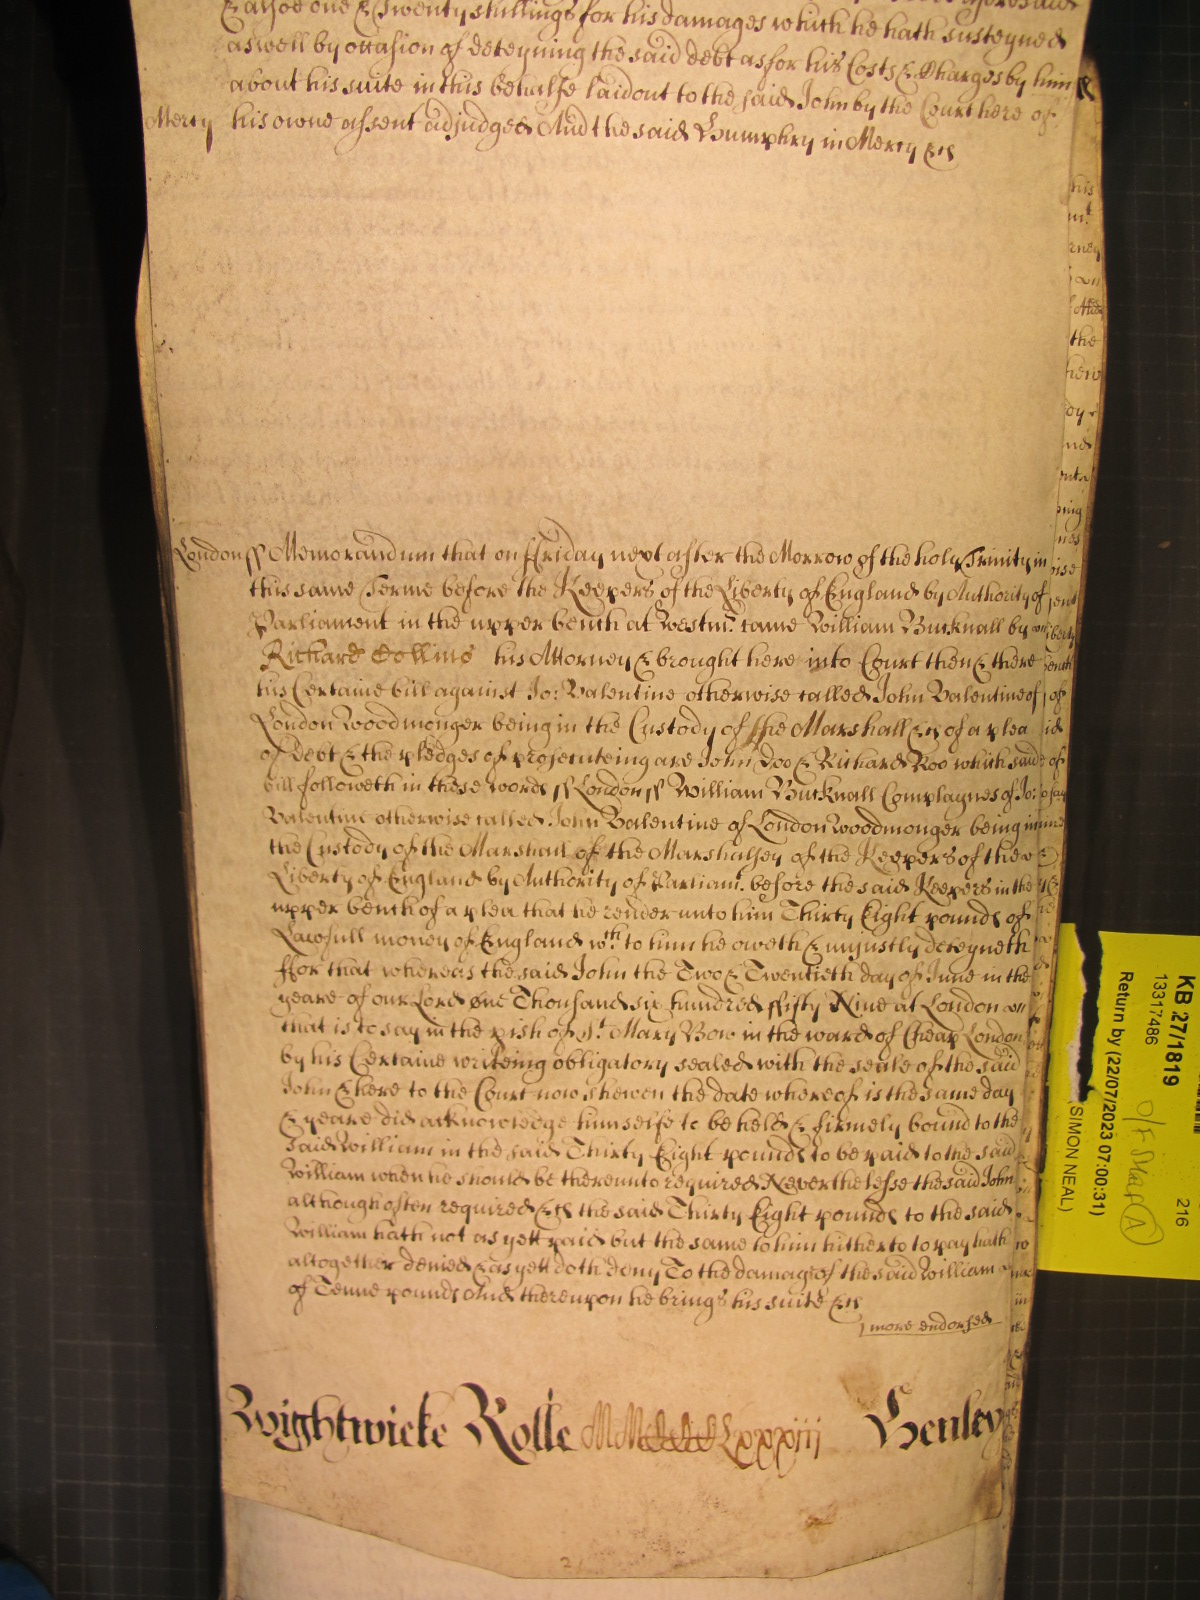 & alsoe one & Twenty shillings for his damages which he hath susteyned
aswell by occasion of deteyning the said debt as for his Costs & Charges by him
about his suite in this behalfe laid out to the said John by the Court here of
Mercy his owne assent adjudged And the said Humphry in Mercy &c
London ss Memorandum that on ffriday next after the Morrow of the holy Trinity in
this same Terme before the Keepers of the Liberty of England by Authority of
Parliament in the upper bench at Westmr. came William Bucknall by
Richard Collins his Attorney & brought here into Court then & there
his Certaine bill against Jo: Valentine otherwise called John Valentine of
London Woodmonger being in the Custody of the Marshall &c of a plea
of debt & the pledges of prosecuteing are John Doo & Richard Roo which said
bill followeth in these words ss London ss William Bucknall Complaynes of Jo:
Valentine otherwise called John Valentine of London Woodmonger being in
the Custody of the Marshall of the Marshalsey of the Keepers of the
Liberty of England by Authority of Parliamt. before the said Keepers in the
upper bench of a plea that he render unto him Thirty Eight pounds of
Lawfull money of England wch. to him he oweth & unjustly deteyneth
ffor that whereas the said John the Two & Twentieth day of June in the
yeare of our Lord One Thousand six hundred ffifty Nine at London
that is to say in the pish of St. Mary Bow in the ward of Cheap London
by his Certaine writeing obligatory sealed with the seale of the said
John & here to the Court now shewen the date whereof is the same day
& yeare did acknowledge himselfe to be held & firmely bound to the
said William in the said Thirty Eight pounds to be paid to the said
William when he should be thereunto required Neverthelesse the said John
although often required &c the said Thirty Eight pounds to the said
William hath not as yett paid but the same to him hitherto to pay hath
altogether denied & as yett doth deny To the damage of the said William
of Tenne pounds And thereupon he brings his suite &c
1 more endorsed
Wightwicke Rolle MMccccLxxxiii Henley
KB 27/1819
13317486
216
Return by (22/07/2023 07:00:31)
SIMON NEAL)